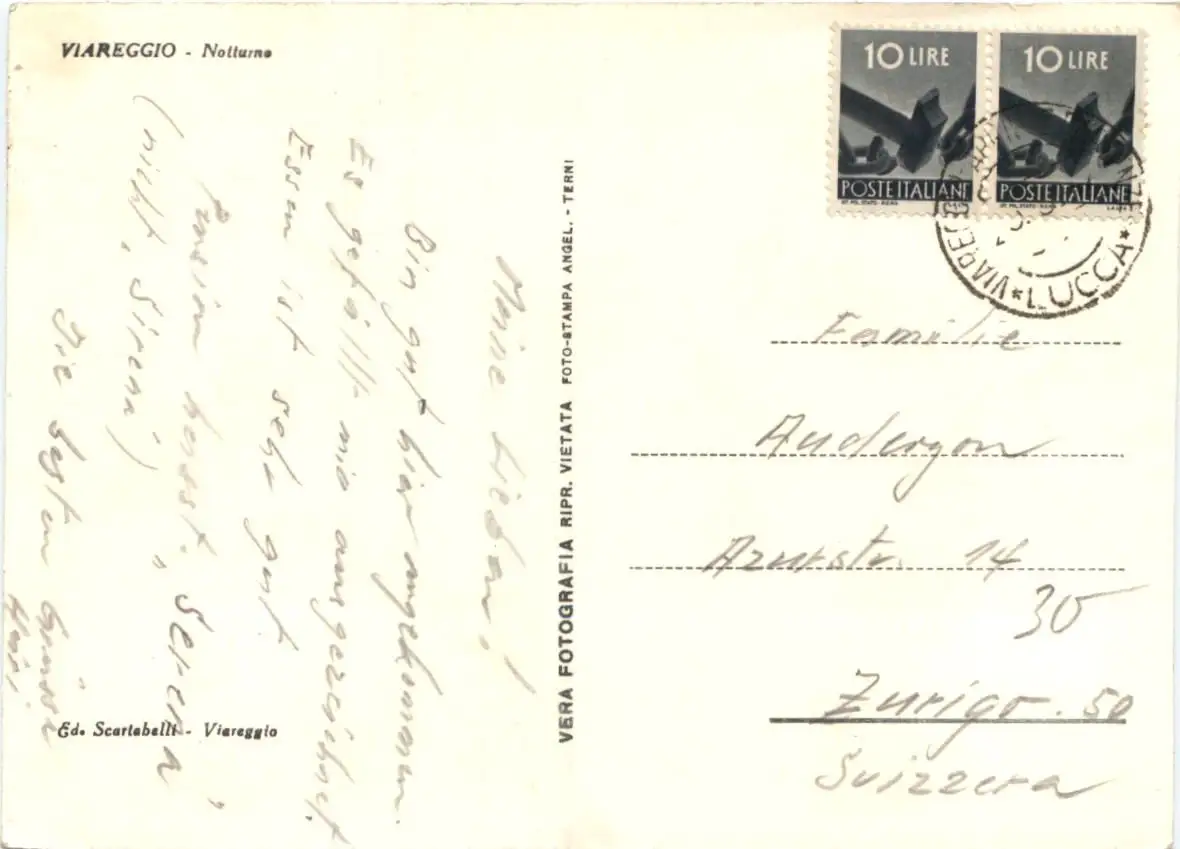 VIAREGGIO - Notturno
10 LIRE
10 LIRE
POSTE ITALIANE
POSTE ITALIANE
VIAREGGIO * LUCCA *
Meine Lieben!
Bin gut hier angekommen.
Es gefällt mir ausgezeichnet.
Essen ist sehr gut
Pension heisst: „Serena"
(nicht, Sirena)
Die besten Grüsse
VERA FOTOGRAFIA RIPR. VIETATA FOTO-STAMPA ANGEL. - TERNI
Familie
Azurstr. 14
30
Zurigo. 50
Svizzera
Ed. Scartabelli - Viareggio